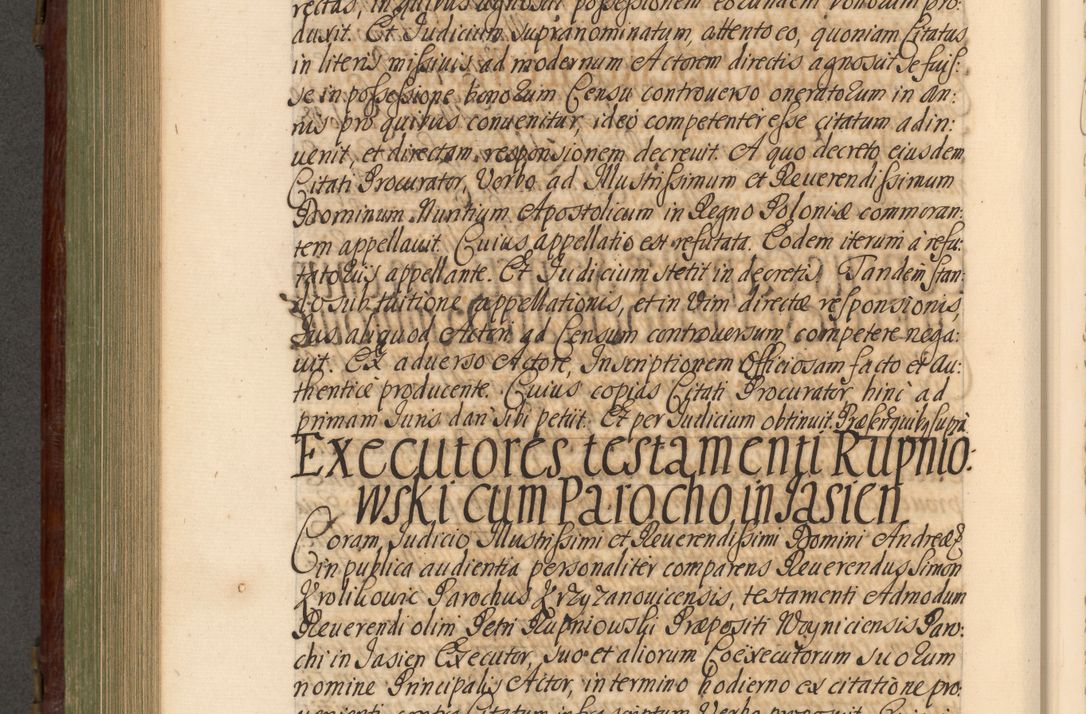 rectas, in quibus agnoscit possessionem eorundem bonorum pro:
duxit. Et Judicium supranominatum, attento eo, quoniam Citatus
in literis missiuis ad modernum Actorem directis agnoscit se fuis:
se in possessione bonorum Censu controuerso oneratorum in an:
nis pro quibus conuenitur, ideo competenter esse citatum adin:
uenit, et directam responsionem decreuit. A quo decreto eiusdem
Citati Procurator, Verbo ad Illustrissimum et Reuerendissimum
Dominum Nuntium Apostolicum in Regno Poloniæ commoran:
tem appellauit. Cuius appellatio est refutata. Eodem iterum à refu:
tatoriis appellante. Et Judicium stetit in decretis. Tandem stan:
do sub tuitione appellationis, et in vim directæ responsionis,
Jus aliquod Actori ad Censum controuersum competere nega:
uit. Ex aduerso Actore, Inscriptionem Officiosam facto et au:
thenticè producente. Cuius copias Citati Procurator hinc ad
primam Juris dari sibi petiit. Et per Judicium obtinuit. Præsentibus quibus supra
Executores testamenti Rupnio:
wski cum Parocho in Jasien
Coram Judicio Illustrissimi et Reuerendissimi Domini Andreæ
in publica audientia personaliter comparens Reuerendus Simon
Krolikowic Parochus Krzyzanouicensis, testamenti Admodum
Reuerendi olim Petri Rupniowski Præpositi Woyniciensis Paro:
chi in Jasien Executor, suo et aliorum Coexecutorum suorum
nomine Principalis Actor, in termino hodierno ex citatione pro:
uenienti contra Citatum infrascriptum Verbo proposuit.